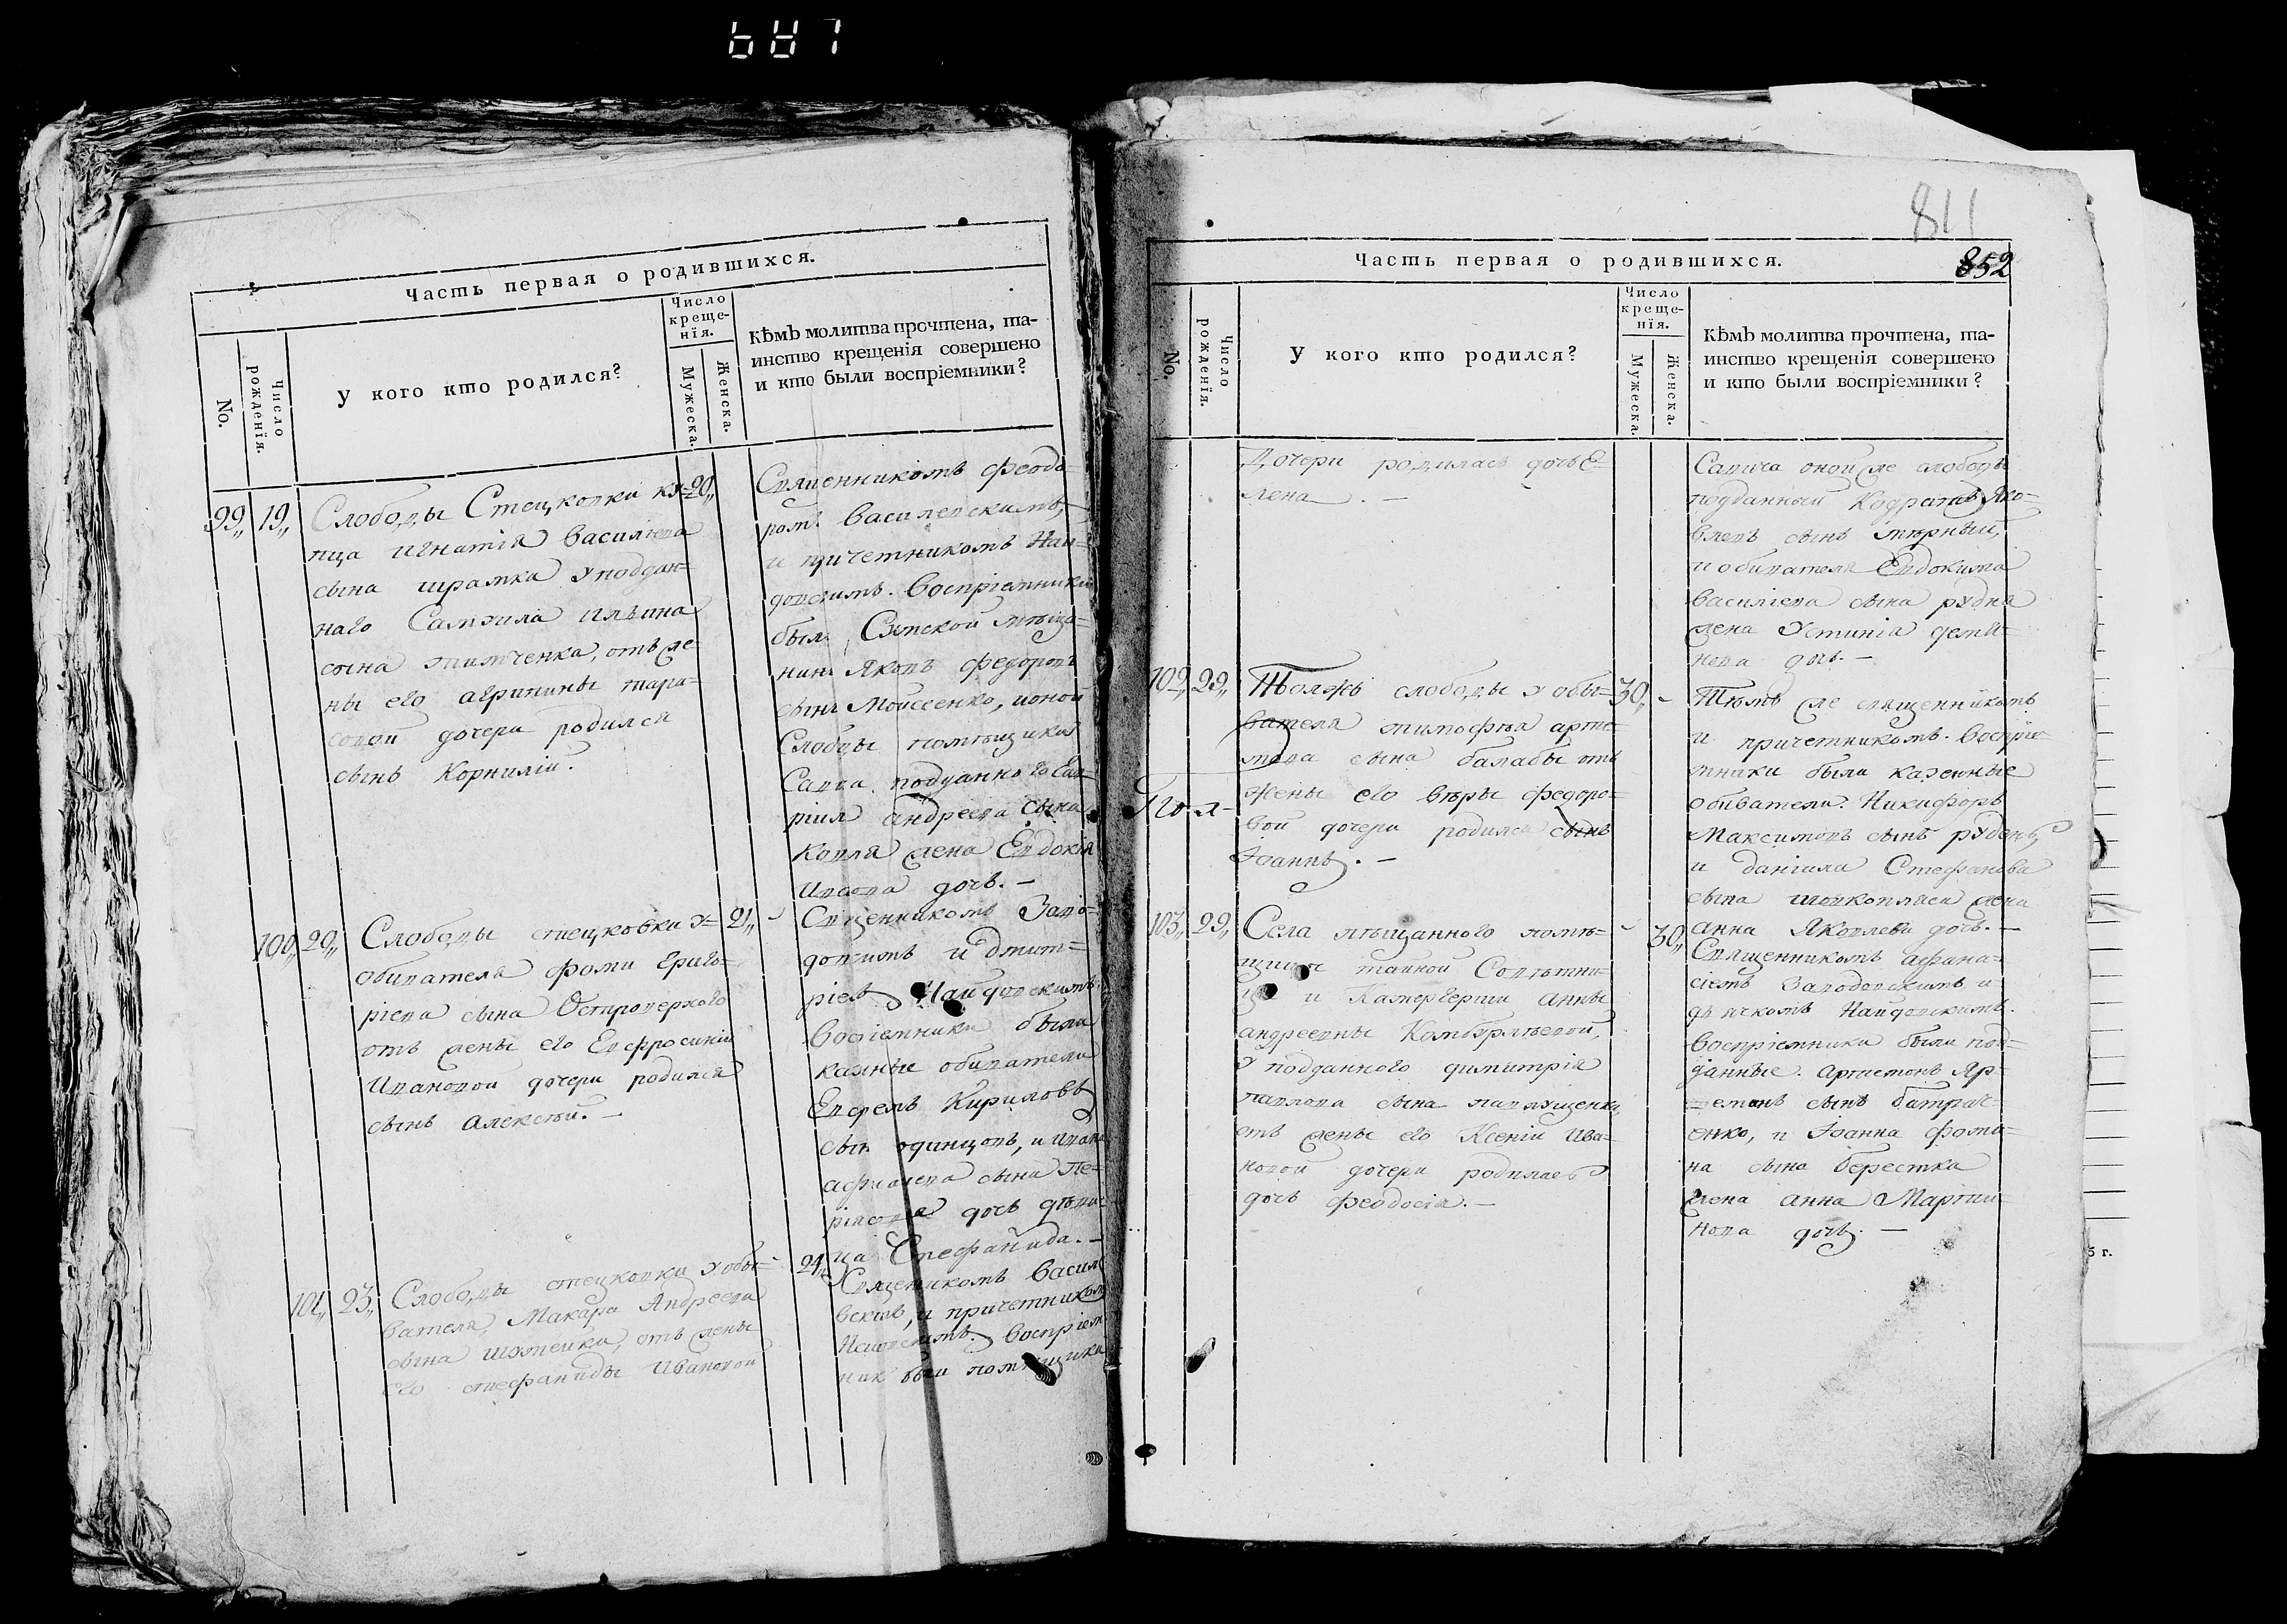 811
Часть первая о родившихся.
No.
Число рожденїя.
У кого кто родился?
Число
креще-
нїя.
Мужеска.
Женска.
Кѣмъ молитва прочтена, та-
инство крещенія совершено
и кто были воспріемники?
99„ 19„
Слободы Стецковки ку-
пца Игнатія Василіева
сына Шрамка у поддан-
наго Самуила Ильина
сына
отъ же-
ны его Агрипины Тара-
совой дочери родился
сынъ Корнилій.
20„
Священникомъ Феодо-
ромъ Василевскимъ,
и причетникомъ Най-
довскимъ. Воспріемники
был Сумской мѣща-
нинъ Яковъ Федоровъ
сынъ Моисеенко, и оной
Слободы помѣщика
Савича подданного
Андреева сына
Ковля жена Евдокія
дочь. —
100„ 20„
Слободы Стецковки у
обивателя Фоми Григо-
ріева сына Островерхого
отъ жены его Евфросиніи
Ивановой дочери родился
сынъ Алексѣй. —
21„
Священникомъ
и Дмит-
ріем Найдовскимъ.
воспріемники были
казенные обиватели
Кириловъ
сын Одинцовъ, и Ивана
сына Пе-
дочь дѣви-
ца Стефанида. —
101„ 23„
Слободы Стецковки у обы-
вателя Макара Андреева
сына Шумейка, отъ жены
его Стефаниды Ивановой
24„
Священникомъ Васил
вскимъ, и причетником
Найдовскимъ. Воспріем
ник были помѣщика
Часть первая о родившихся.
852
No.
Число рожденїя.
У кого кто родился?
Число
креще-
нїя.
Мужеска.
Женска.
Кѣмъ молитва прочтена, та-
инство крещенія совершено
и кто были воспріемники?
Дочери родилась дочь Е-
лена. —
Савича оной же слободы
подданный Кодратъ Яко-
влевъ сынъ
и обивателя Евдокима
Василіева сына Рудня
жена Устинія Деми-
нова дочь. —
102„ 29„
Тояжъ слободы у обы-
вателя Тимофѣя Арте-
мова сына Балабы отъ
жены его Вѣры Федоро-
вой дочери родился сынъ
Іоаннъ. —
30„
Тѣмъ же священникомъ
и причетникомъ. Воспріе-
мники были казенные
обиватели. Никифоръ
Максимовъ сынъ Руденъ,
и Даніила Стефанова
сына Шовкопляса жена
Анна Яковлева дочь. —
103„ 29„
Села Мѣщанного помѣ-
щици тайной Совѣтни-
ци и Камергерши Анны
Андреевны Комбурлѣевой,
у подданного Димитрія
Павлова сына Павлущенка
отъ жены его Ксеніи Ива-
новой дочери родилась
дочь Феодосія. —
30„
Священникомъ Афана-
сіемъ и
дьячкомъ Найдовскимъ.
Воспріемники были под-
данные. Артемонъ Яр-
сынъ Батрач-
енко, и Іоанна Фоми-
на сына Берестка
жена Анна Марти-
нова дочь. —
5 г.